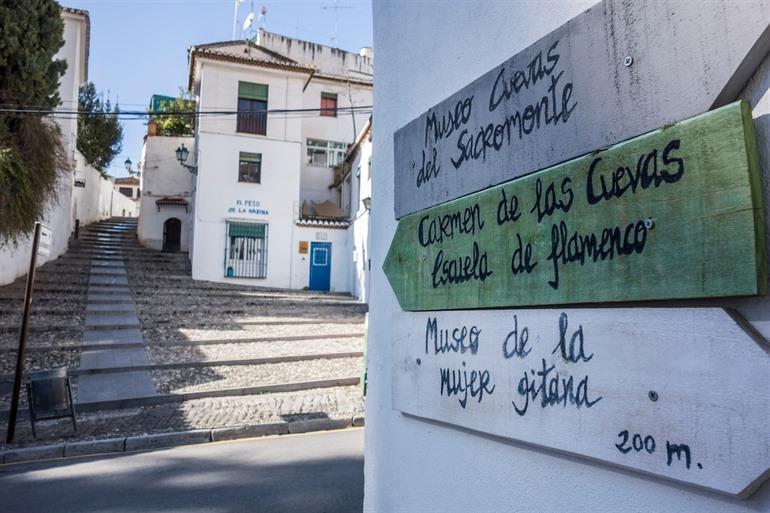 EL PESO
DE LA HARINA
Museo Cuevas
del Sacromonte
Carmen de las Cuevas
Escuela de flamenco
Museo de la
mujer gitana
200 m.